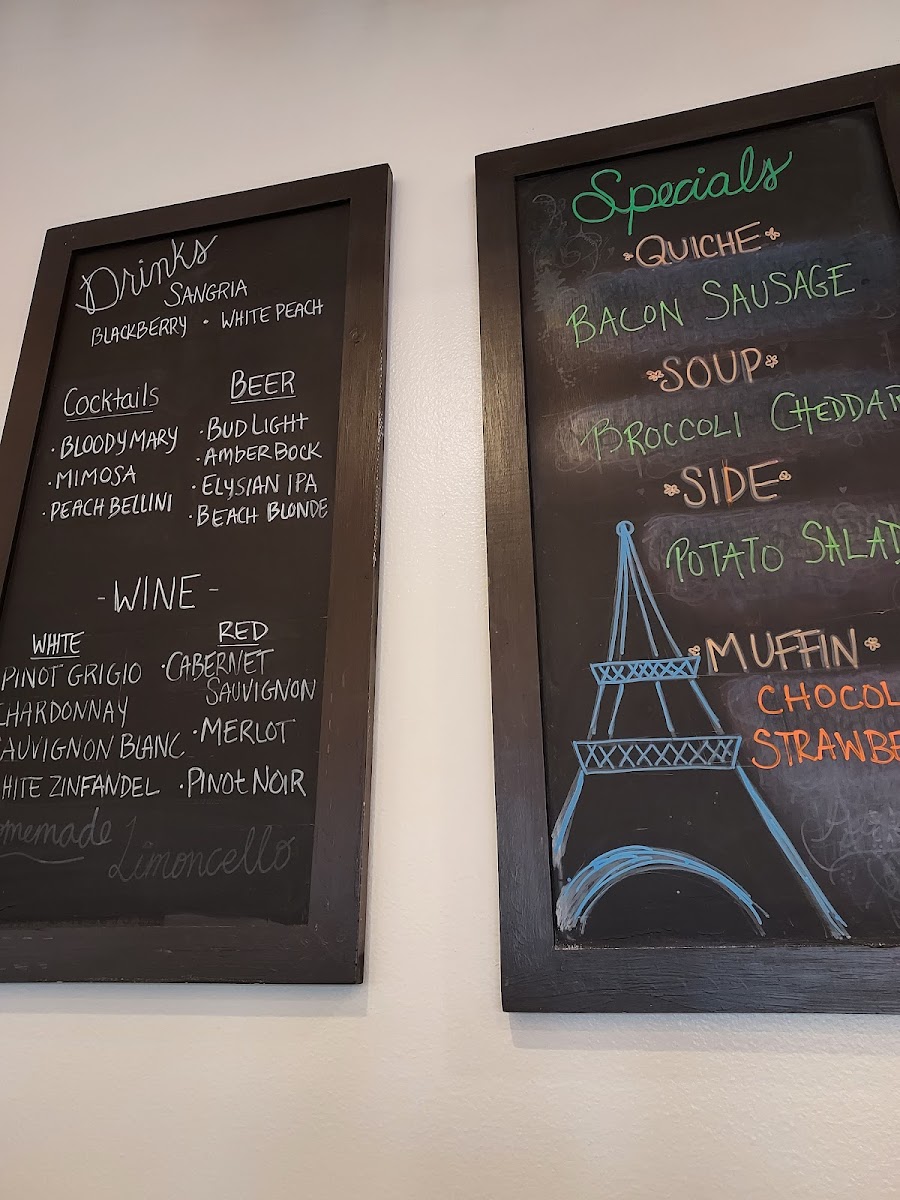 Drinks
SANGRIA
BLACKBERRY • WHITE PEACH
Cocktails
• BLOODY MARY
• MIMOSA
• PEACH BELLINI
BEER
• BUD LIGHT
• AMBER BOCK
• ELYSIAN IPA
• BEACH BLONDE
- WINE -
WHITE
PINOT GRIGIO
CHARDONNAY
SAUVIGNON BLANC
HITE ZINFANDEL
RED
• CABERNET
SAUVIGNON
• MERLOT
• PINOT NOIR
omemade
Limoncello
Specials
QUICHE
BACON SAUSAGE
SOUP
BROCCOLI CHEDDAR
SIDE
POTATO SALAD
MUFFIN
CHOCOL
STRAWBE